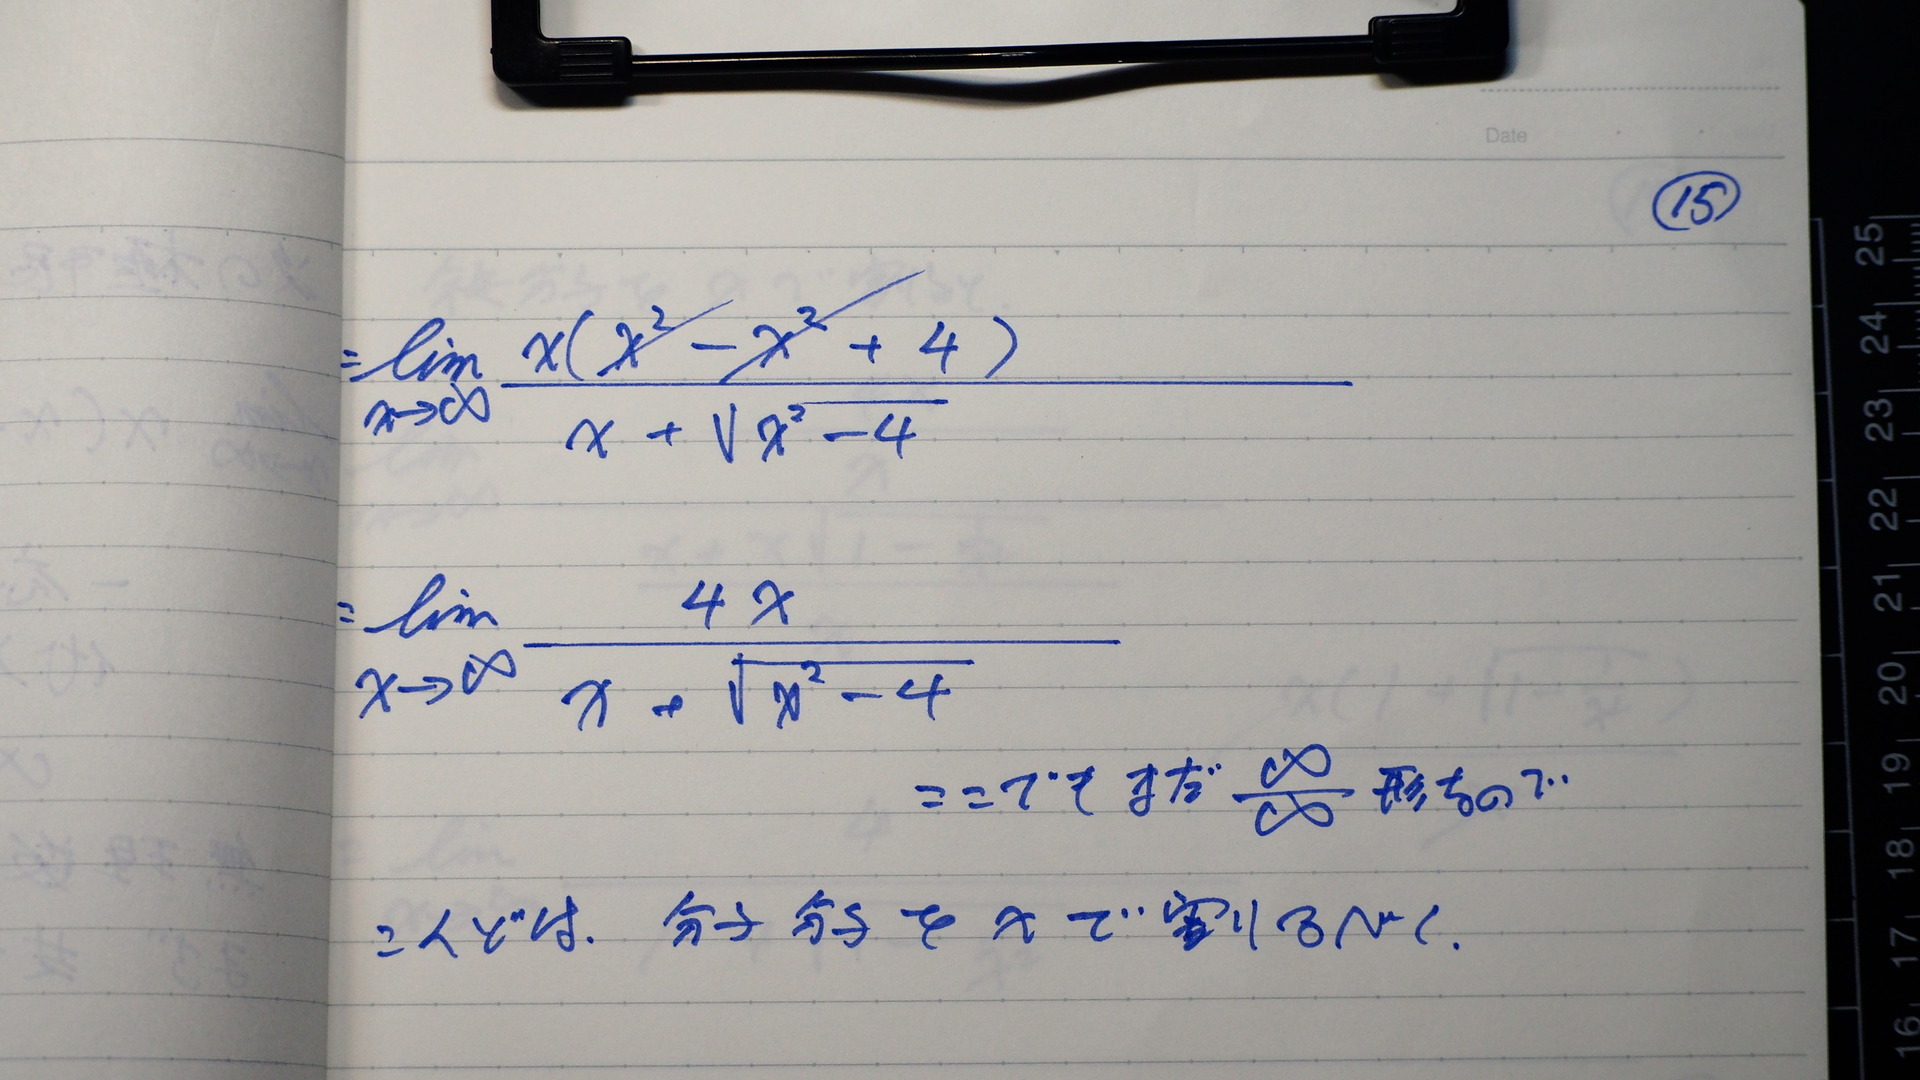 Date
⑮
= lim x→∞ x(x² - x² + 4) / x + √x² - 4
= lim x→∞ 4x / x + √x² - 4
ここでもまだ ∞/∞ 形なので
こんどは、分子 分子を xで 割るべく.
25
24
23
22
21
20
19
18
17
16